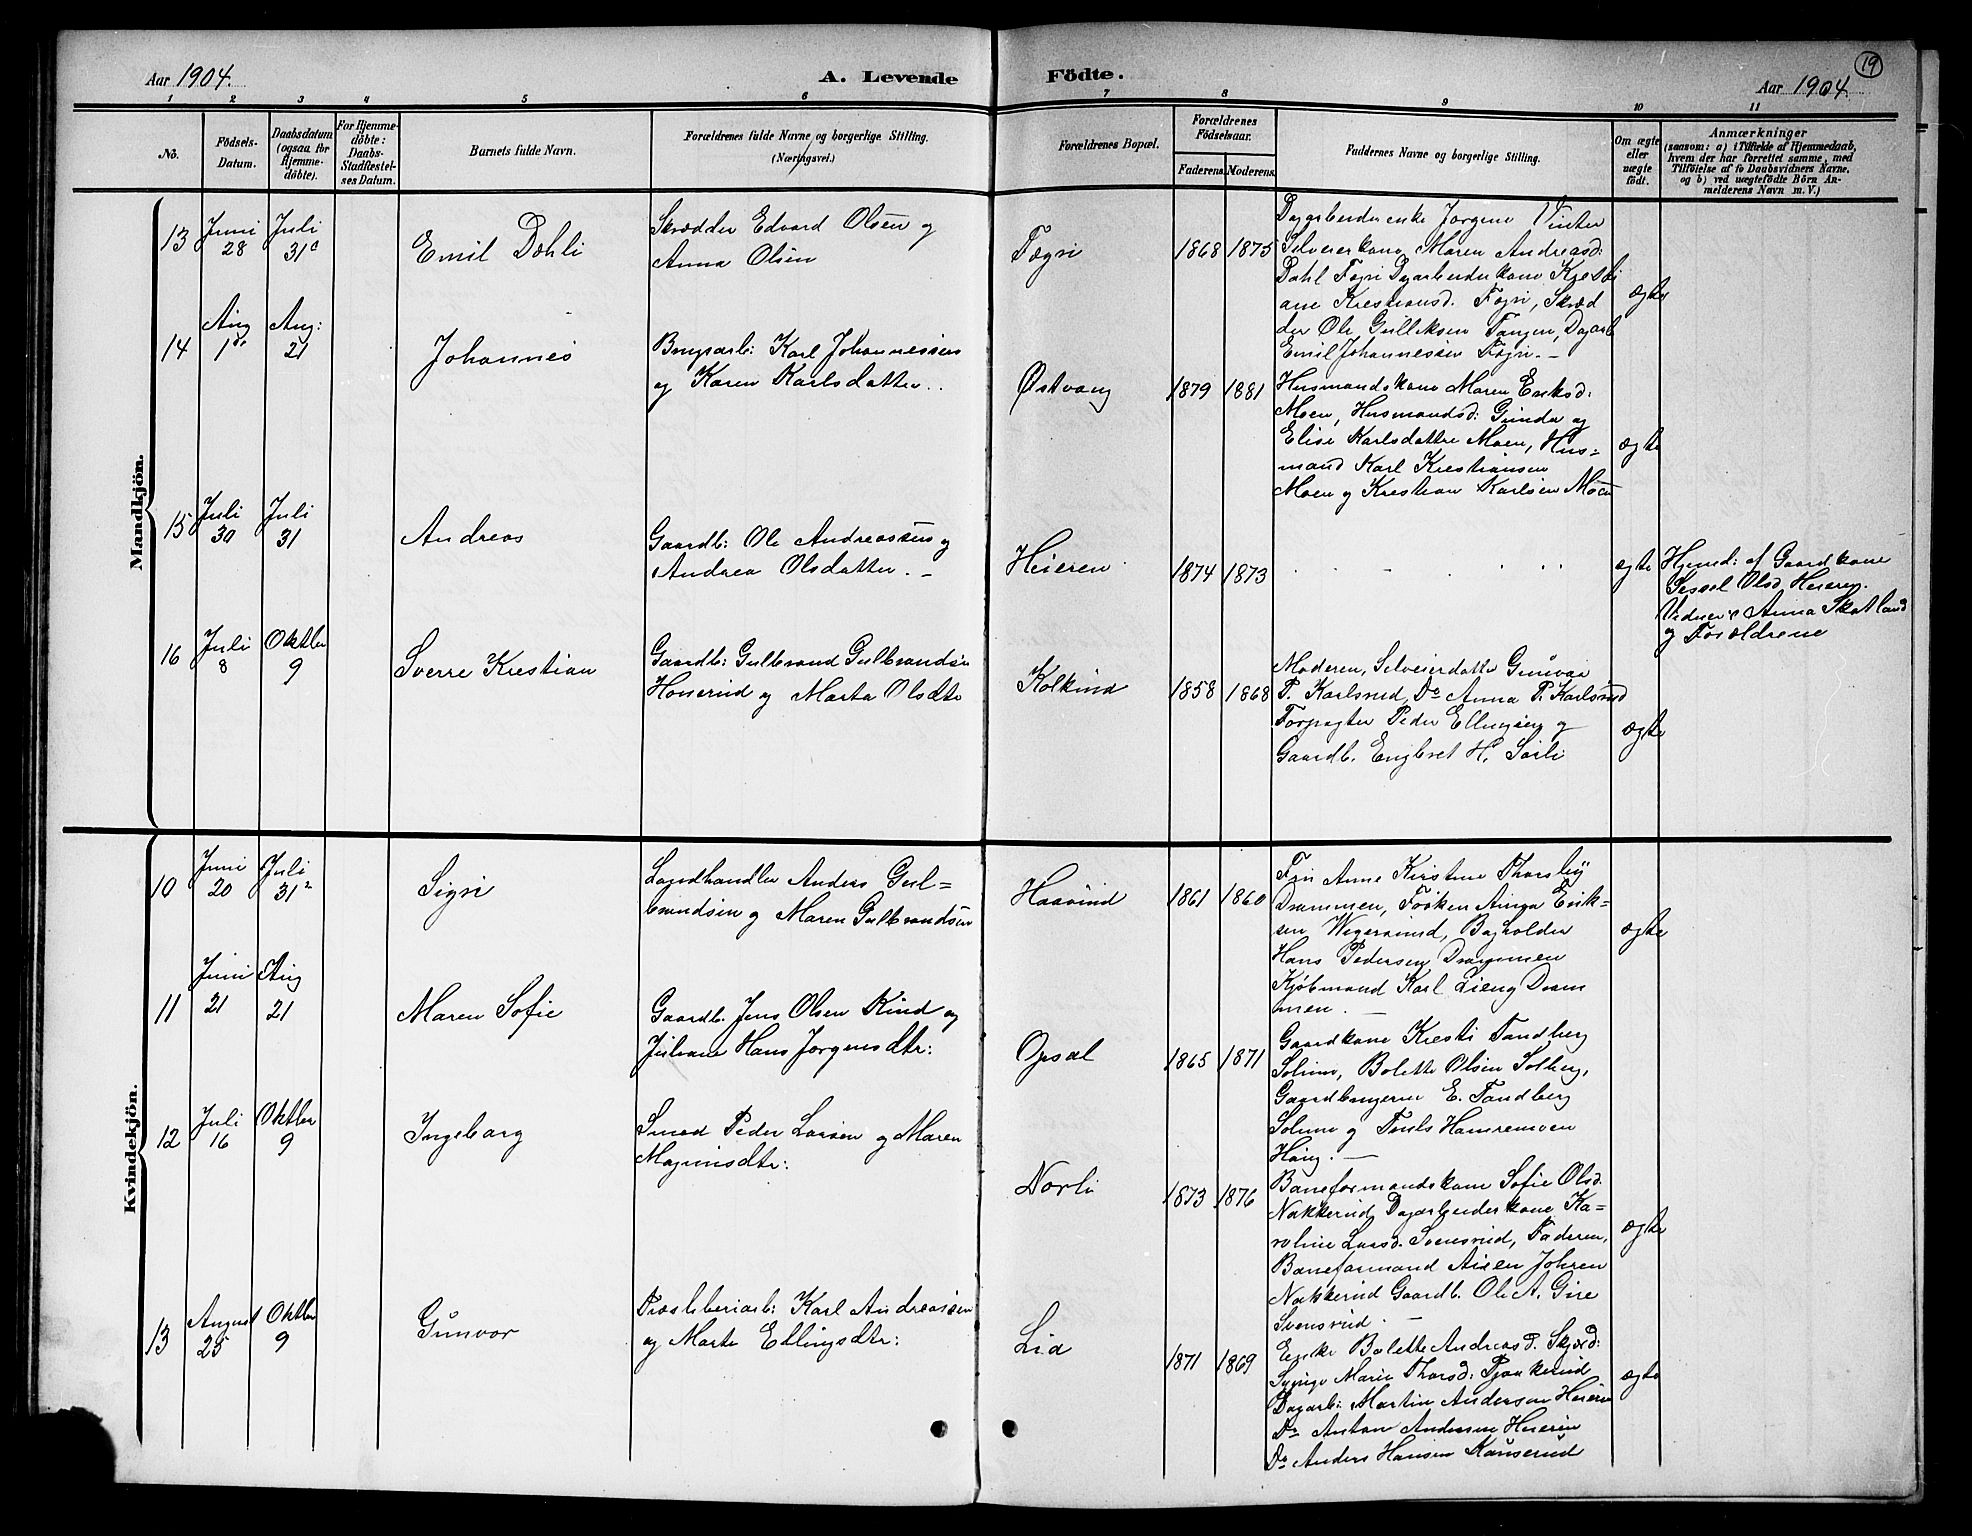 Aar 1904.
A. Levende Födte.
19
Aar 1904.
1 2 3 4 5 6 7 8 9 10 11
No.
Födsels-
Datum.
Daabsdatum
(ogsaa for
Hjemme-
döbte).
For Hjemme-
döbte:
Daabs-
Stadfæstel-
ses Datum.
Barnets fulde Navn.
Forældrenes fulde Navne og borgerlige Stilling.
(Næringsvei.)
Forældrenes Bopæl.
Forældrenes
Födselsaar.
Faderens. Moderens.
Faddernes Navne og borgerlige Stilling.
Om ægte
eller
uægte
födt.
Anmærkninger
(saasom: a) i Tilfælde af Hjemmedaab,
hvem der har forrettet samme, med
Tilföielse af to Daabsvidners Navne,
og b) ved uægtefödte Börn An-
melderens Navn m. V.)
Mandkjön.
13
Juni
28
Juli
31
Emil Dæhli
Skrædder Edvard Olsen og
Anna Olsen
Fagri
1868 1875
Dagarbeiderenke Jørgine Vinter
Selveierkone Maren Andreasd:
Dahl Fagri Dagarbeiderkone Kresti
ane Krestiansd. Fagri, Skræd
der Ole Gulliksen Tangen, Dagarb
Emil Johannessen Fagri. –
ægte
14
Aug
1
Aug:
21
Johannes
Brugsarb: Karl Johannessen
og Karen Karlsdatter.
Østvang
1879 1881
Husmandskone Maren Eriksd:
Moen, Husmandsd: Gunda og
Elise Karlsdattre Moen, Hus=
mand Karl Krestiansen
Moen og Krestian Karlsen Moen
ægte
15
Juli
30
Juli
31
Andreas
Gaardb: Ole Andreassen og
Andrea Olsdatter. –
Heieren
1874 1873
ægte
Hjemd: af Gaardkone
Sessel Olsd Heieren.
Vidner: Anna Skatland
og Forældrene
16
Juli
8
Oktbr
9
Sverre Krestian
Gaardb: Gulbrand Gulbrandsen
Honerud og Marta Olsdtr
Kolkind
1858 1868
Moderen, Selveierdatter Gunvor
P. Karlsrud, Do Anna P. Karlsrud
Forpagter Peder Ellingsen og
Gaardb. Engbret H. Sørli
ægte
Kvindekjön.
10
Juni
20
Juli
31
Sigri
Landhandler Anders Gul=
brandsen og Maren Gulbrandsen
Haavind
1861 1860
Fru Anne Kirstine Thorsby
Drammen, Frøken Ainga Erik=
sen Wegersund, Bogholder
Hans Pedersen Drammen
Kjøbmand Karl Lieng Dram
men. –
ægte
11
Juni
21
Aug
21
Maren Sofie
Gaardb. Jens Olsen Kind og
Juliane Hans Jørgensdtr:
Opsal
1865 1871
Gaardkone Kresti Tandberg
Solum, Bolette Olsen Solberg,
Gaardbrugerne E. Tandberg
Solum og Truls Hamremoen
Haug. –
12
Juli
16
Oktbr
9
Ingeborg
Smed Peder Larsen og Maren
Magnusdtr:
Norli
1873 1876
Baneformandskone Sofie Olsd.
Nakkerud, Dagarbeiderkone Ka=
roline Larsd. Svensrud, Faderen,
Baneformand Johren
Nakkerud Gaardb. Ole A. Gire
Svensrud. –
ægte
13
August
25
Oktbr
9
Gunvor
Træsliberiarb: Karl Andreassen
og Marte Ellingsdtr:
Lia
1871 1869
Enke Bolette Andreasd. Skjærd:
Marie Thorsd: Pjaakerud
Dagarb: Martin Andersen Heieren
Do Anton Andersen Heieren
Do Anders Hansen Kanserud
ægte